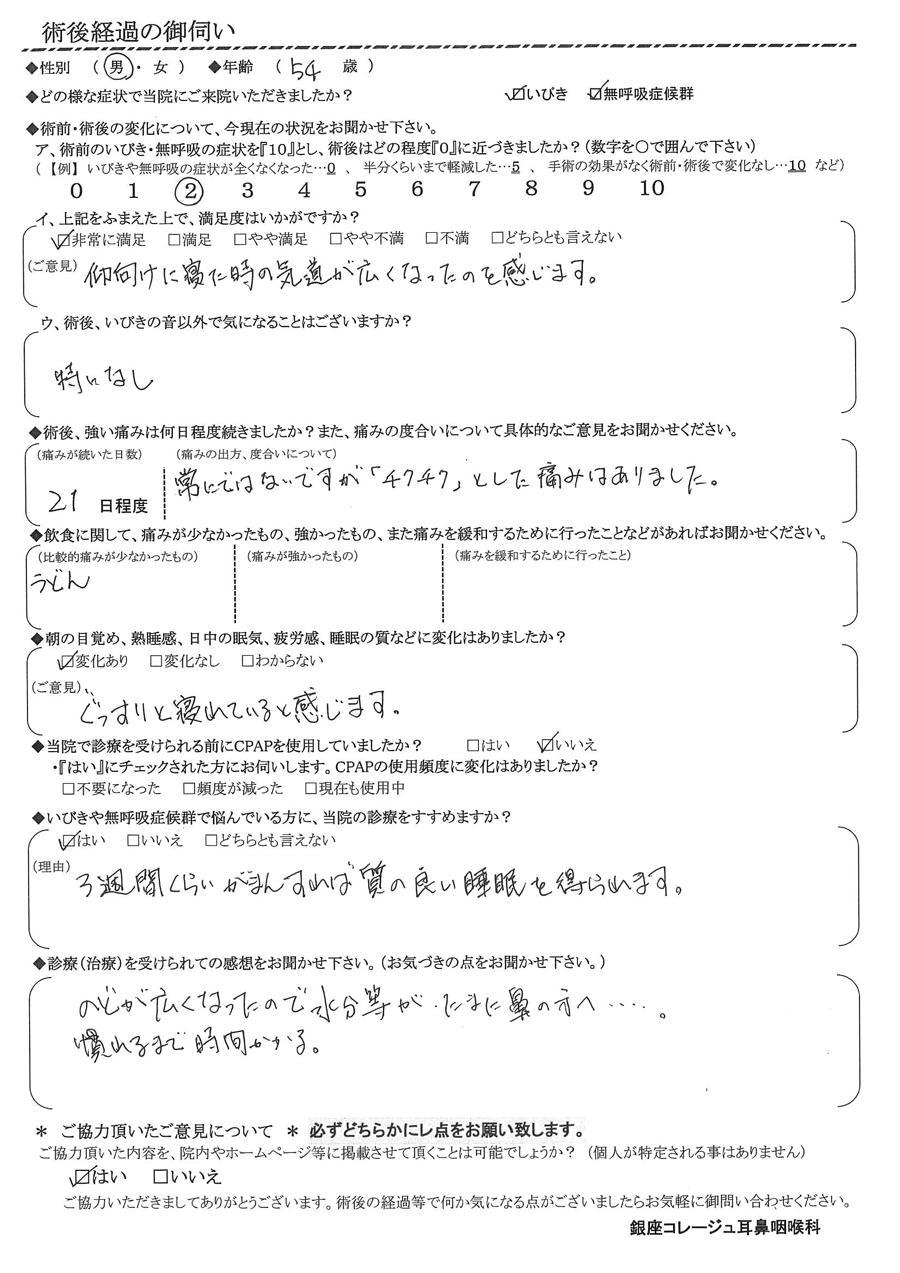 術後経過の御伺い
◆性別 (男・女) ◆年齢 (54 歳)
◆どの様な症状で当院にご来院いただきましたか? ☑いびき ☑無呼吸症候群
◆術前・術後の変化について、今現在の状況をお聞かせ下さい。
ア、術前のいびき・無呼吸の症状を『10』とし、術後はどの程度『0』に近づきましたか?(数字を○で囲んで下さい)
(【例】いびきや無呼吸の症状が全くなくなった…0 、 半分くらいまで軽減した…5 、 手術の効果がなく術前・術後で変化なし…10 など)
0 1 ② 3 4 5 6 7 8 9 10
イ、上記をふまえた上で、満足度はいかがですか?
☑非常に満足 □満足 □やや満足 □やや不満 □不満 □どちらとも言えない
(ご意見) 仰向けに寝た時の気道が広くなったのを感じます。
ウ、術後、いびきの音以外で気になることはございますか?
特になし
◆術後、強い痛みは何日程度続きましたか?また、痛みの度合いについて具体的なご意見をお聞かせください。
(痛みが続いた日数) (痛みの出方、度合いについて)
常にではないですが「チクチク」とした痛みはありました。
21 日程度
◆飲食に関して、痛みが少なかったもの、強かったもの、また痛みを緩和するために行ったことなどがあればお聞かせください。
(比較的痛みが少なかったもの) (痛みが強かったもの) (痛みを緩和するために行ったこと)
うどん
◆朝の目覚め、熟睡感、日中の眠気、疲労感、睡眠の質などに変化はありましたか?
☑変化あり □変化なし □わからない
(ご意見)
ぐっすりと寝れていると感じます。
◆当院で診療を受けられる前にCPAPを使用していましたか? □はい ☑いいえ
・『はい』にチェックされた方にお伺いします。CPAPの使用頻度に変化はありましたか?
□不要になった □頻度が減った □現在も使用中
◆いびきや無呼吸症候群で悩んでいる方に、当院の診療をすすめますか?
☑はい □いいえ □どちらとも言えない
(理由) 3週間くらいがまんすれば質の良い睡眠を得られます。
◆診療(治療)を受けられての感想をお聞かせ下さい。(お気づきの点をお聞かせ下さい。)
のどが広くなったので水分等が、たまに鼻の方へ‥‥。
慣れるまで時間かかる。
* ご協力頂いたご意見について * 必ずどちらかにレ点をお願い致します。
ご協力頂いた内容を、院内やホームページ等に掲載させて頂くことは可能でしょうか? (個人が特定される事はありません)
☑はい □いいえ
ご協力いただきましてありがとうございます。術後の経過等で何か気になる点がございましたらお気軽に御問い合わせください。
銀座コレージュ耳鼻咽喉科